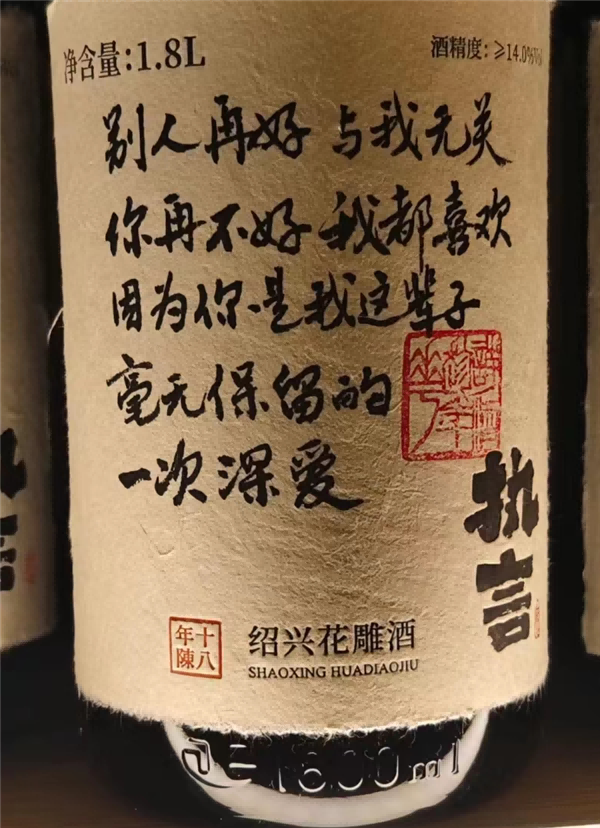 净含量:1.8L
酒精度:≥14.0%vol
别人再好 与我无关
你再不好 我都喜欢
因为你是我这辈子
毫无保留的
一次深爱
执言
十八年陳
绍兴花雕酒
SHAOXING HUADIAOJIU
1800ml